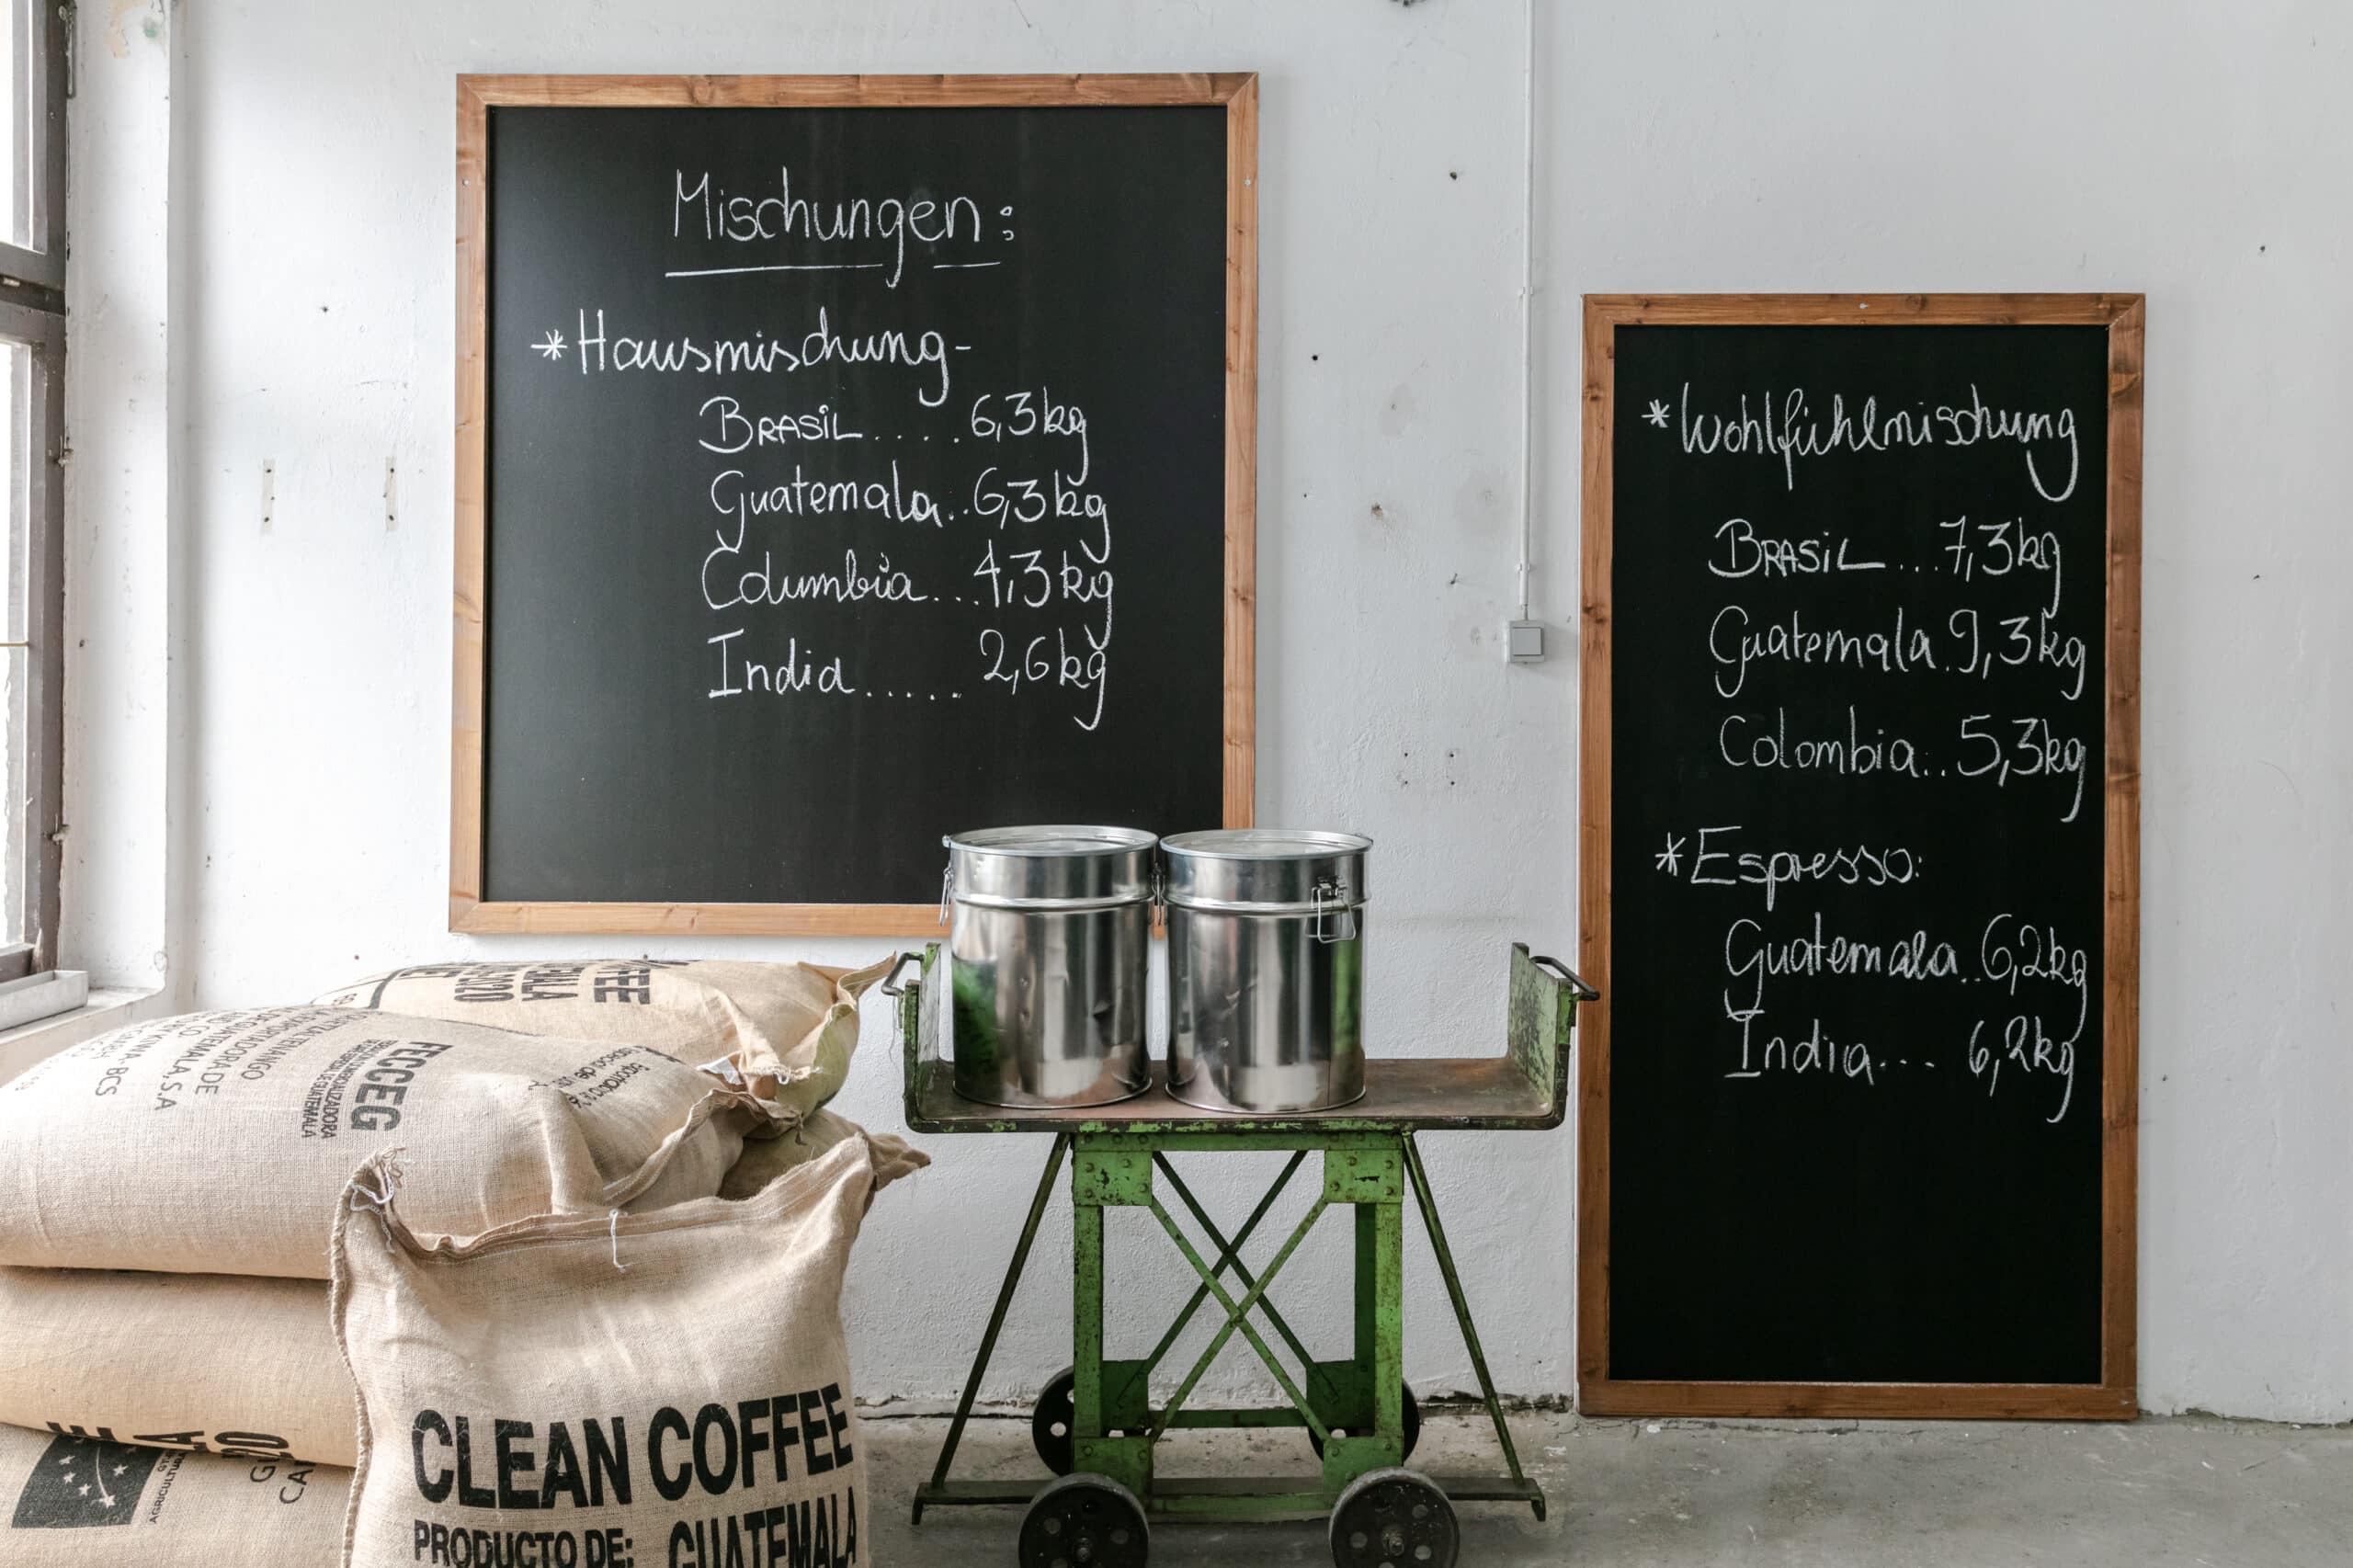 Mischungen:
*Hausmischung-
BRASiL.....6,3kg
Guatemala..6,3kg
Columbia...4,3kg
India..... 2,6kg
*Wohlfühlmischung
BRASiL...7,3kg
Guatemala.9,3kg
Colombia..5,3kg
*Espresso:
Guatemala..6,2kg
India... 6,2kg
FECCEG
GUATEMALA, S.A
CLEAN COFFEE
PRODUCTO DE: GUATEMALA